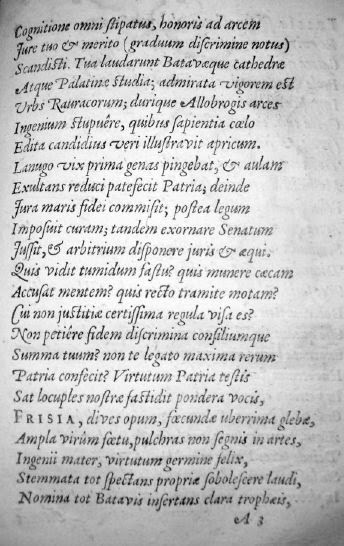 Cognitione omni stipatus, honoris ad arcem
Jure tuo & merito (graduum discrimine notus)
Scandisti. Tua laudarunt Batavæque cathedræ
Atque Palatinæ studia; admirata vigorem est
Urbs Rauracorum; durique Allobrogis arces
Ingenium stupuêre, quibus sapientia cœlo
Edita candidius veri illustravit apricum.
Lanugo vix prima genas pingebat, & aulam
Exultans reduci patefecit Patria; deinde
Jura maris fidei commisit; postea legum
Imposuit curam; tandem exornare Senatum
Jussit, & arbitrium disponere juris & æqui.
Quis vidit tumidum fastu? quis munere cæcam
Accusat mentem? quis recto tramite motam?
Cui non justitiæ certissima regula visa es?
Non petiêre fidem discrimina consiliumque
Summa tuum? non te legato maxima rerum
Patria confecit? Virtutum Patria testis
Sat locuples nostræ fastidit pondera vocis,
FRISIA, dives opum, fœcundæ uberrima glebæ,
Ampla virûm fœtu, pulchras non segnis in artes,
Ingenii mater, virtutum germine felix,
Stemmata tot spectans propriæ sobolescere laudi,
Nomina tot Batavis insertans clara trophæis,
A 3